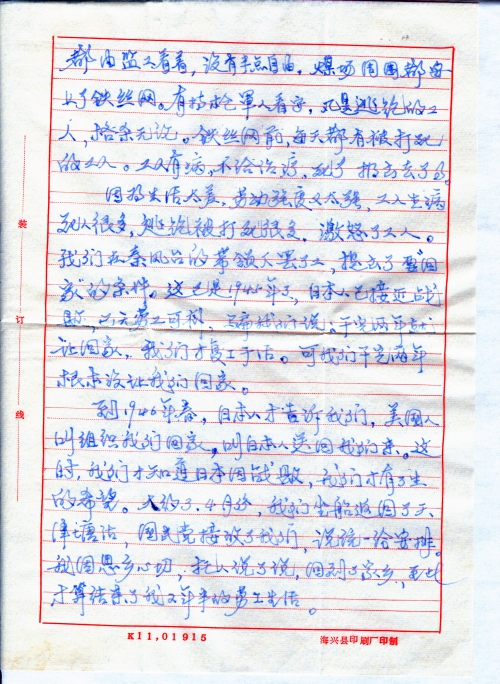 都由监工看着，没有半点自由。煤场周围都安
上了铁丝网。有持枪军人看守，凡是逃跑的工
人，格杀无论。铁丝网前，每天都有被打死
的工人。工人有病，不给治疗，死了拉出去了事。
因为生活太差，劳动强度又太强，工人生病
死人很多，逃跑被打死很多，激怒了工人。
我们在秦风台的带领人罢了工，提出了要回
家的条件。这也是1945年了，日本人已接近战
败，劳工可利，我们说，干完两年就
让回家，我们才复工干活。可我们干完两年
根本没让我们回家。
到1946年春，日本人才告诉我们，美国人
叫组织我们回家，叫日本人送回我们来。这
时，我们才知道日本国战败，我们才有了生
的希望。大约3、4月份，我们坐船返回了天
津塘沽 国民党接收了我们，说统一给安排。
我因思乡心切，托人说了说，回到了家乡，至此
才算结束了我又年半的劳工生活。
装
订
线
K11,01915
海兴县印刷厂印制